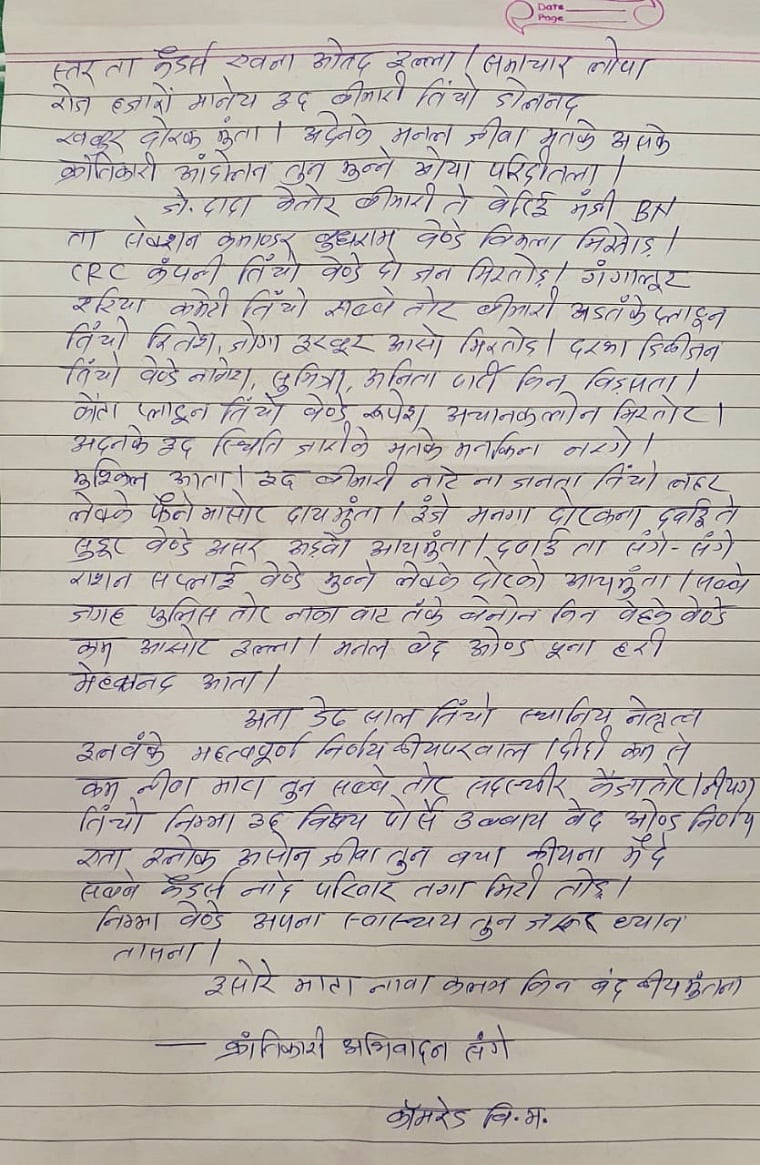 Date
Page
स्तर ता कैडर्स रचना ओतद इल्ला। समाचार लोपा
रोज हजारों मानेय इद बीमारी तिंचो डोलनद
खबर दोरक मुंता। अदेनके मनल जीवा मतके अपके
क्रांतिकारी आंदोलन तुन मुन्ने ओया परिदीतला।
जे. दादा केतोर बीमारी ते वेरिई मंजी BN
ता सेक्शन कमाण्डर बुधराम वेण्डे विमला मिरतोड़।
CRC कंपनी तिंचो वेण्डे दो जन मिरतोड़। गंगालूर
एरिया कमेटी तिंचो सब्बे तोर बीमारी अडतंके प्लाटून
तिंचो रितेश, जोगा इरवूर आसो मिरतोड़। दरभा डिवीजन
तिंचो वेण्डे नागेश, सुमित्रा, अनिता पार्ती किन विडपता।
केंता प्लाटून तिंचो वेण्डे रूपेश अचानक लोन मिरतोर।
अदनके इद स्थिति जारीके मतके मनकिना नरगे।
मुश्किल आता। इद बीमारी नाटे ना जनता तिंचो लहर
लेवके फैने मासोर दायमुंता। इंजे मनगा दोरकना दवाई ते
सुद्दूर वेण्डे असर अडवो आयमुंता। दवाई ता संगे-संगे
राशन सप्लाई वेण्डे मुन्ने लेवके दोरको आयमुंता। सब्बे
जगह पुलिस तोर नाका वाट तंके बेनोन किन वेहके वेण्डे
कम आसोर इल्ला। मनल बेद ओण्ड पूना हरी
मेहकानद आता।
अता डेढ साल तिंचो स्थानिय नेतृत्व
इनवंके महत्वपूर्ण निर्णय कीयपरवाल। दीदी कम से
कम जीवा माटा तुन सब्बे तोर सदस्यीर कैंजातोर। नीयग
तिंचो निम्मा इद विषय पोर्रो उव्वाय बेद ओण्ड निर्णय
एता इलेक असोन जीवा तुन बचा कीयना मैदे
सब्बे कैडर्स नाटे परिवार तगा मिरी तोड़।
निम्मा वेण्डे अपना स्वास्थ्य तुन जरूर ध्यान
तासना।
इसोरे माटा नावा कलम किन बंद कीयमुंतना
— क्रांतिकारी अभिवादन संगे
कॉमरेड वि.म.